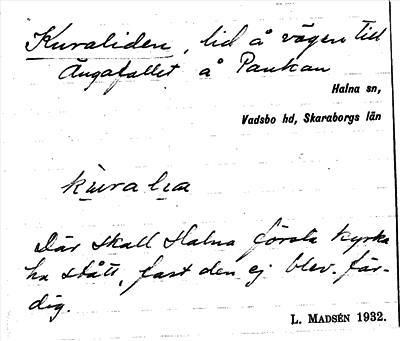 Kuraliden, lid å vägen till
Ängafallet å Pankan
Halna sn,
Vadsbo hd, Skaraborgs län
kura lia
Där skall Halna första kyrka
ha stått, fast den ej blev. fär-
dig.
L. MADSÉN 1932.